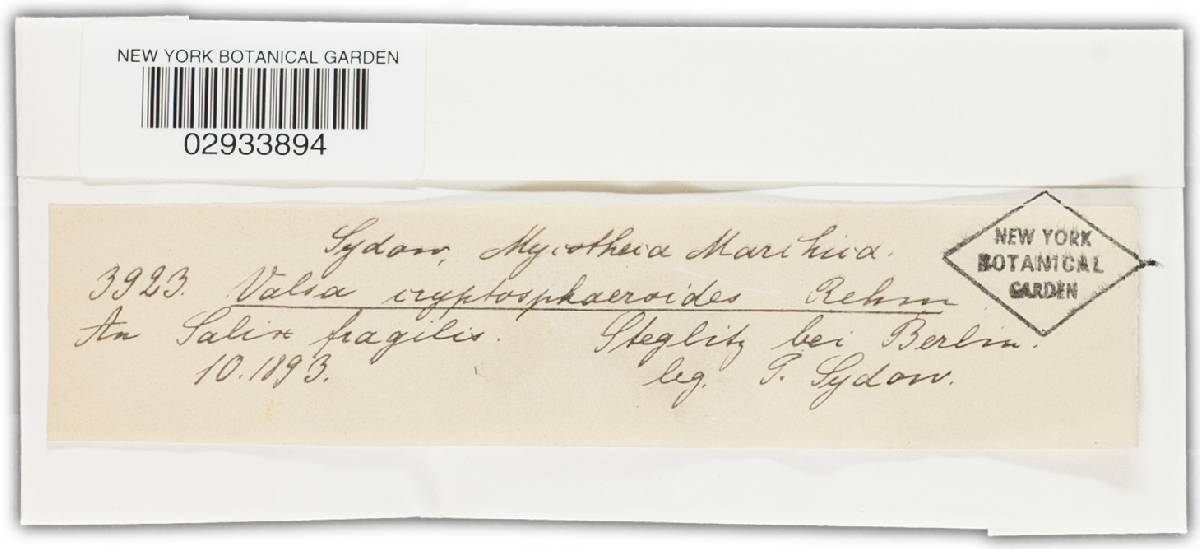 NEW YORK BOTANICAL GARDEN
02933894
Sydow, Mycotheca Marchica.
3923. Valsa cryptosphaeroides Rehm
An Salix fragilis. Steglitz bei Berlin.
10.1893. leg. P. Sydow.
NEW YORK
BOTANICAL
GARDEN